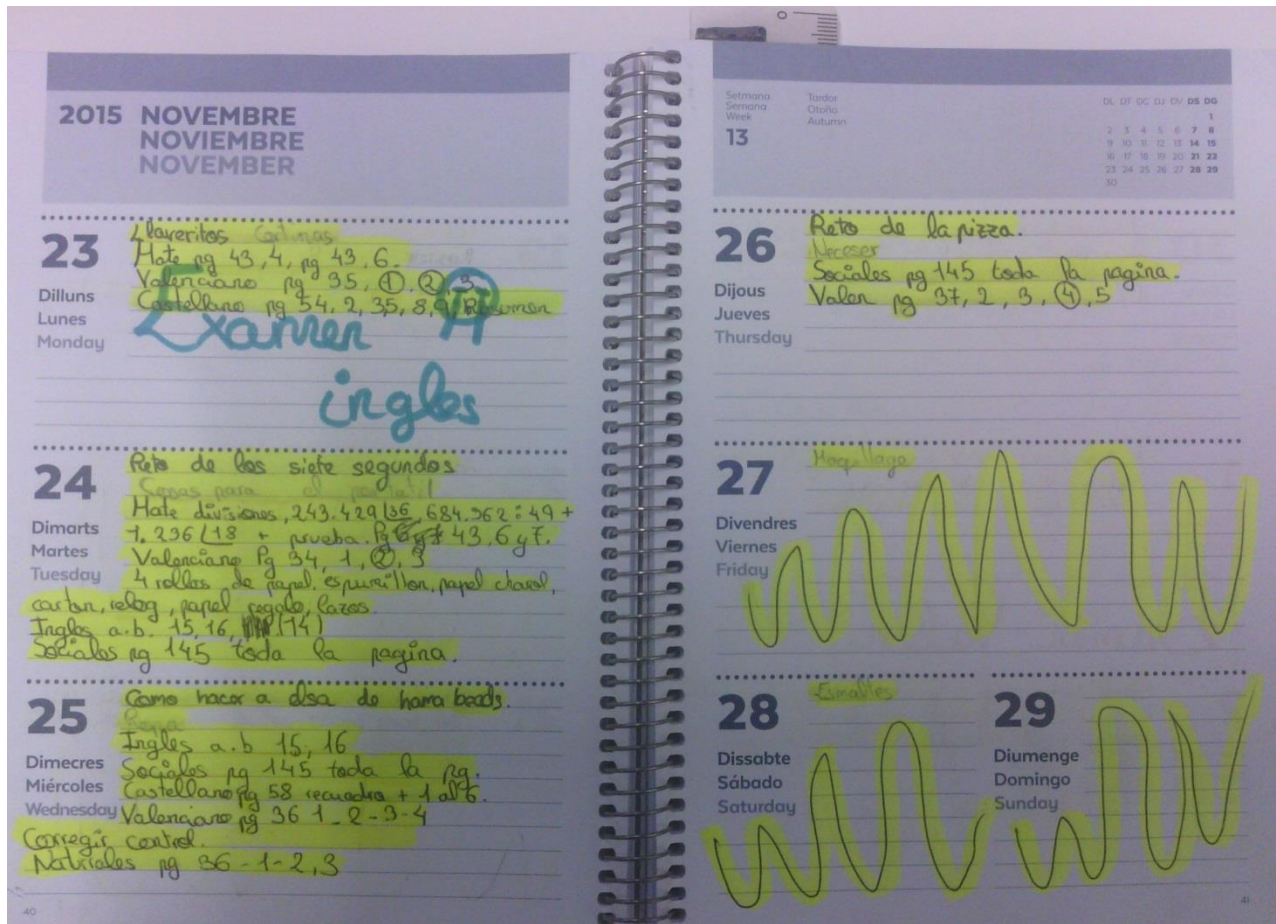 2015 NOVEMBRE
NOVIEMBRE
NOVEMBER
23
Dilluns
Lunes
Monday
Llaveritos Cortinas
Mate pg 43, 4, pg 43, 6.
Valenciano pg 35, 1, 2, 3
Castellano pg 54, 2, 35, 8, 9 Resumen
Examen
ingles
24
Dimarts
Martes
Tuesday
Reto de los siete segundos
Cosas para el
Mate divisiones, 243.429 36, 684.962 : 49 +
1.296 18 + prueba. Pg 43, 6 y 7.
Valenciano Pg 34, 1, 2, 3
4 rollos de papel, espumillon, papel charol,
carton, relog, papel regalo, lazos.
Ingles a.b. 15, 16, (14)
Sociales pg 145 toda la pagina.
25
Dimecres
Miércoles
Wednesday
Como hacer a elsa de hama beads.
Ropa
Ingles a.b 15, 16
Sociales pg 145 toda la pg.
Castellano pg 58 recuadro + 1 al 6.
Valenciano pg 36 1-2-3-4
Corregir control.
Naturales pg 36-1-2,3
40
Setmana
Semana
Week
13
Tardor
Otoño
Autumn
DL DT DC DJ DV DS DG
1
2 3 4 5 6 7 8
9 10 11 12 13 14 15
16 17 18 19 20 21 22
23 24 25 26 27 28 29
30
26
Dijous
Jueves
Thursday
Reto de la pizza.
Neceser
Sociales pg 145 toda la pagina.
Valen pg 37, 2, 3, 4, 5
27
Divendres
Viernes
Friday
Maquillage
28
Dissabte
Sábado
Saturday
Esmaltes
29
Diumenge
Domingo
Sunday
41